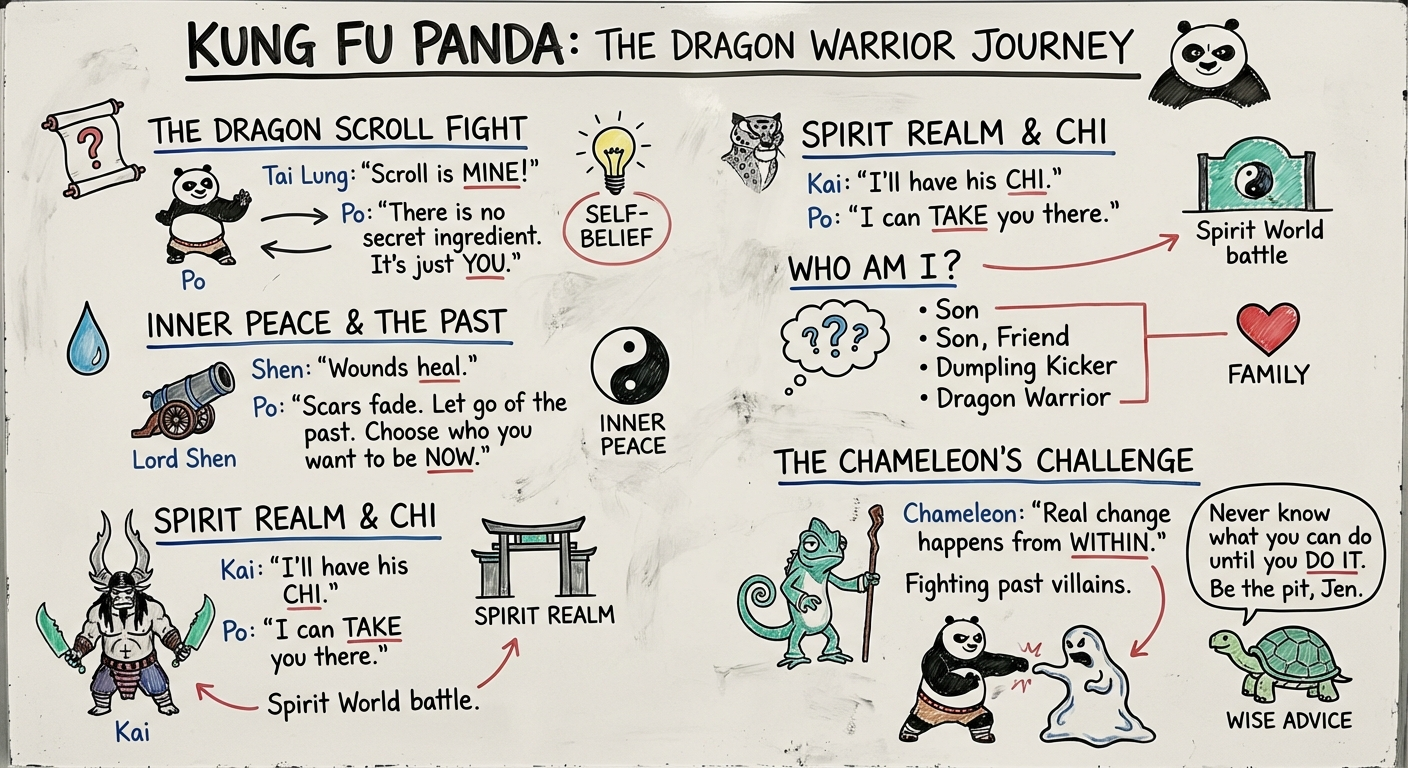 KUNG FU PANDA: THE DRAGON WARRIOR JOURNEY
THE DRAGON SCROLL FIGHT
?
Tai Lung: “Scroll is MINE!”
Po: “There is no
secret ingredient.
It's just YOU.”
Po
SELF-
BELIEF
INNER PEACE & THE PAST
Shen: “Wounds heal.”
Po: “Scars fade. Let go of the
past. Choose who you
want to be NOW.”
Lord Shen
INNER
PEACE
SPIRIT REALM & CHI
Kai: “I'll have his
CHI.”
Po: “I can TAKE
you there.”
Spirit World battle.
Kai
SPIRIT REALM
SPIRIT REALM & CHI
Kai: “I'll have his CHI.”
Po: “I can TAKE you there.”
Spirit World
battle
WHO AM I?
???
• Son
• Son, Friend
• Dumpling Kicker
• Dragon Warrior
FAMILY
THE CHAMELEON'S CHALLENGE
Chameleon: “Real change
happens from WITHIN.”
Fighting past villains.
Never know
what you can do
until you DO IT.
Be the pit, Jen.
WISE ADVICE